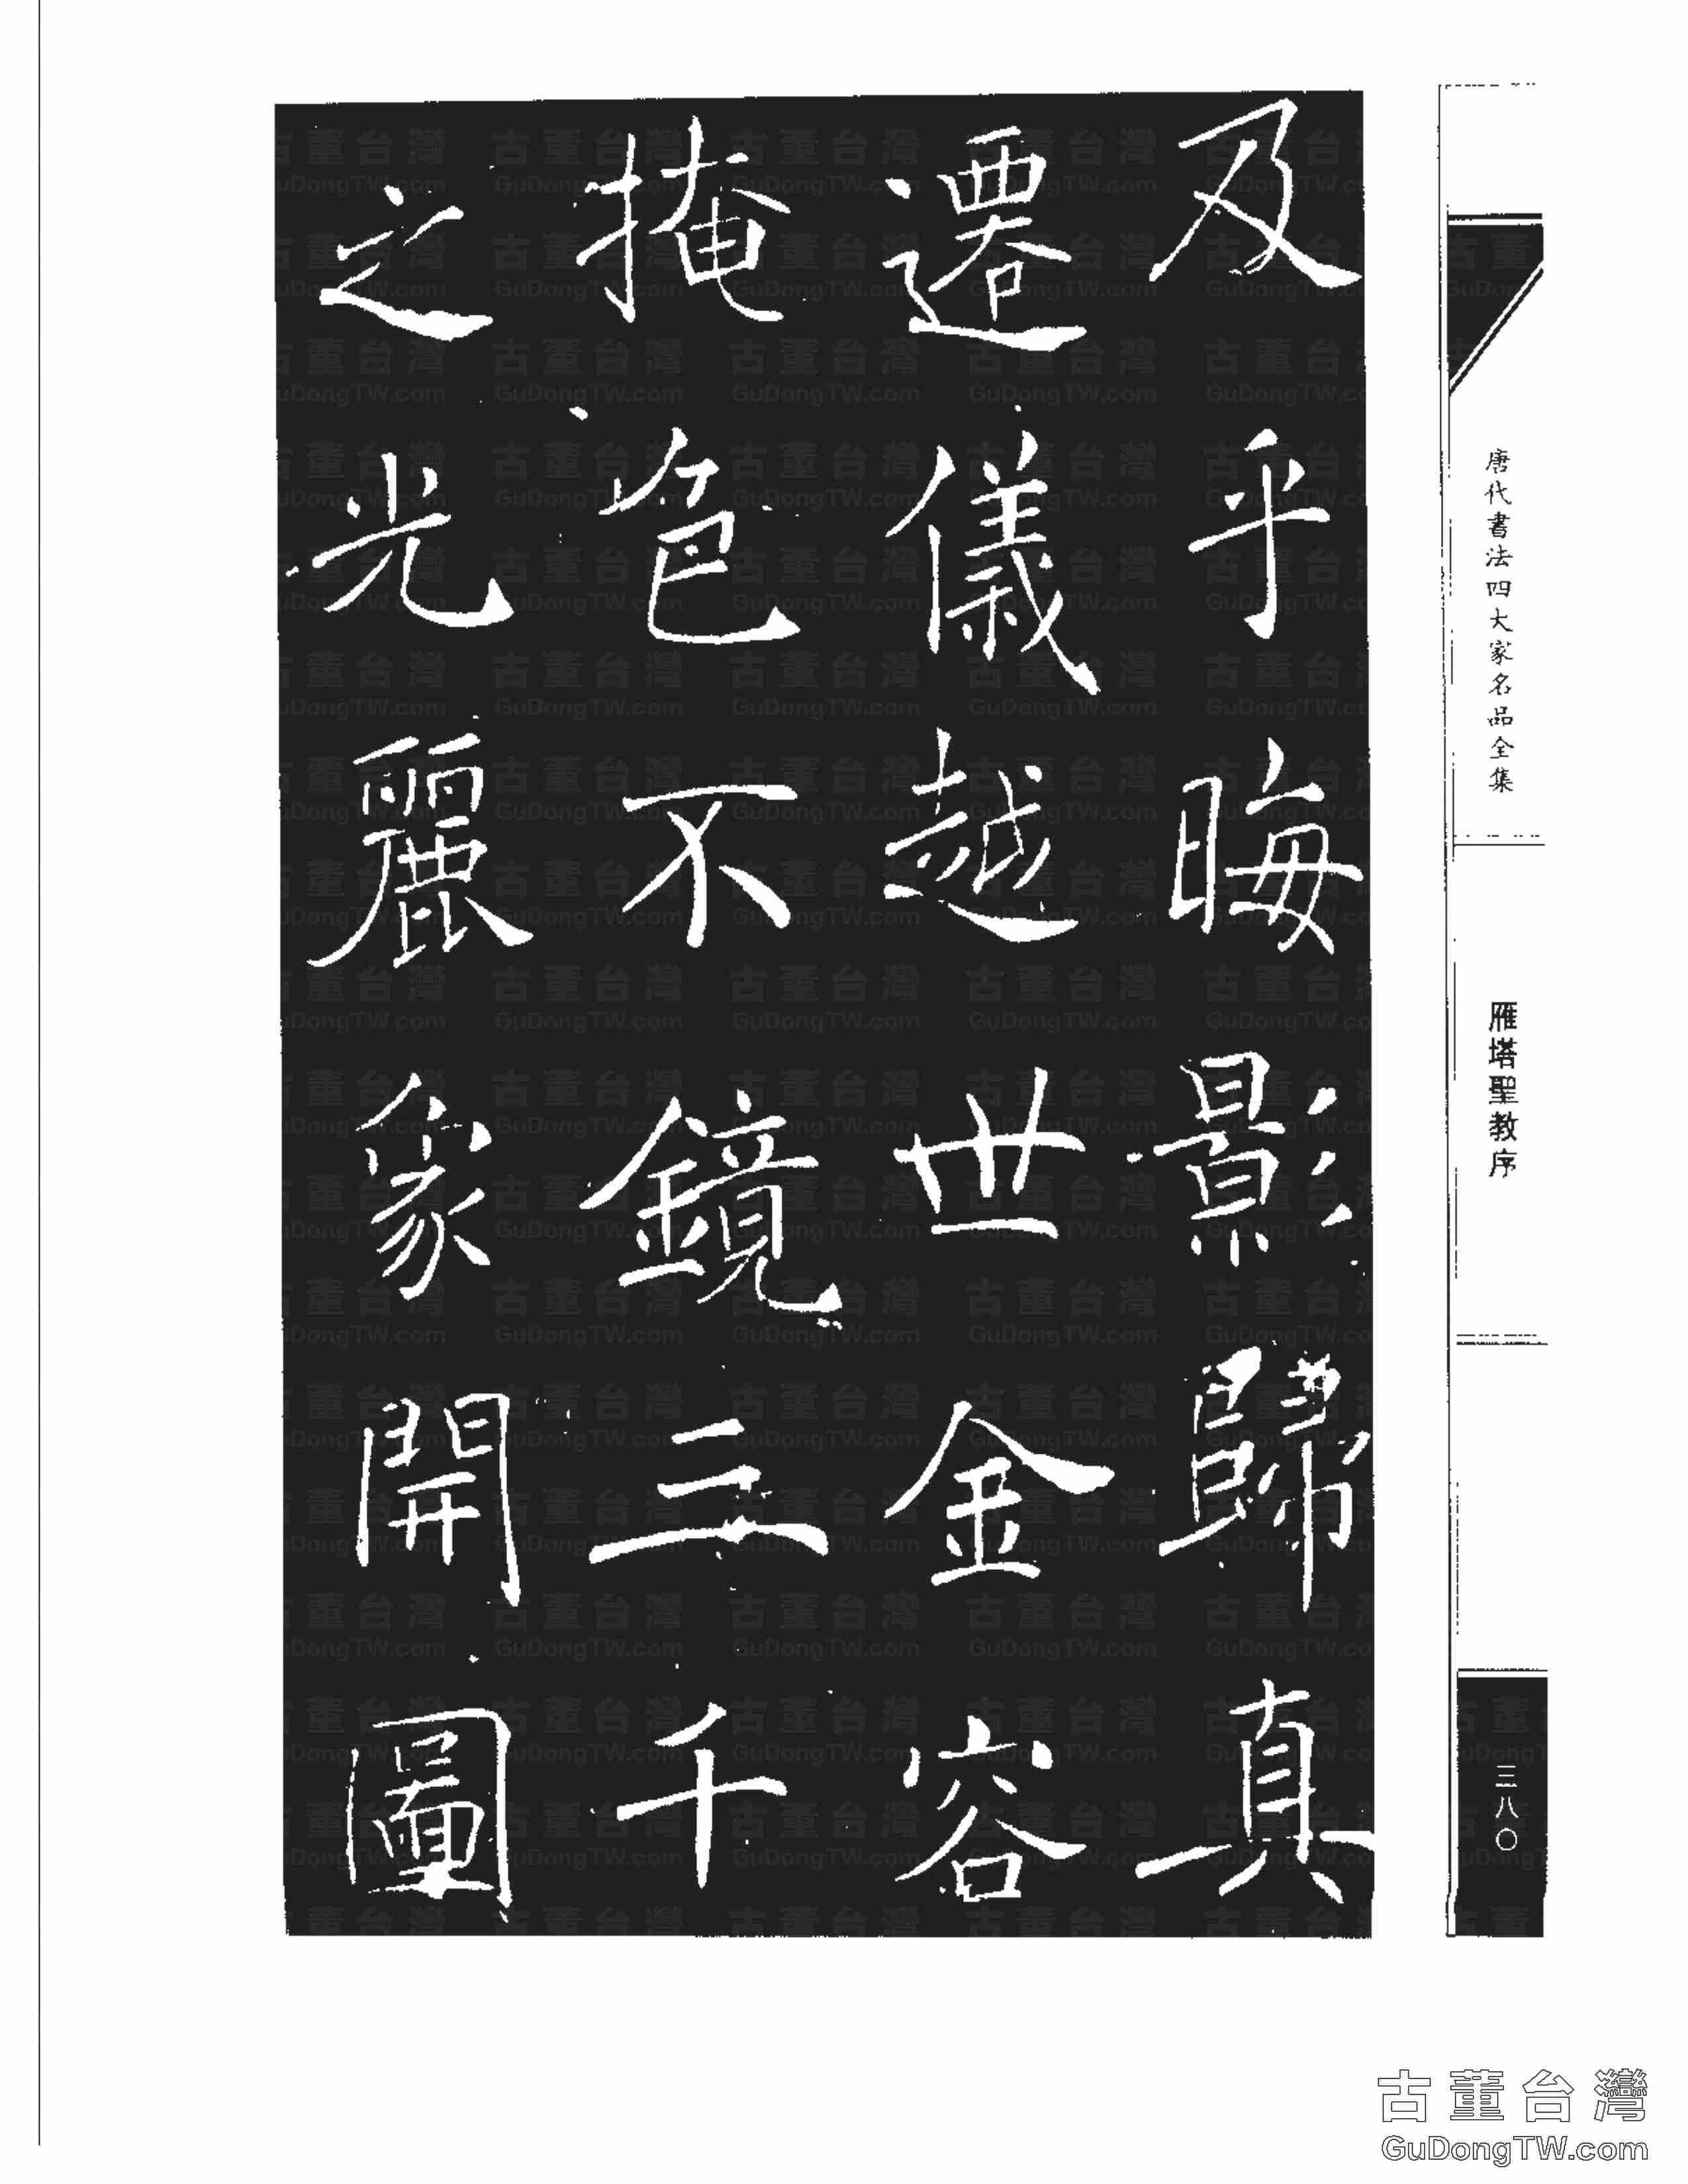 及乎晦影歸真
遷儀越世金容
掩色不鏡三千
之光麗象開圖
唐代書法四大家名品全集
雁塔聖教序
三八〇
古董台灣
GuDongTW.com